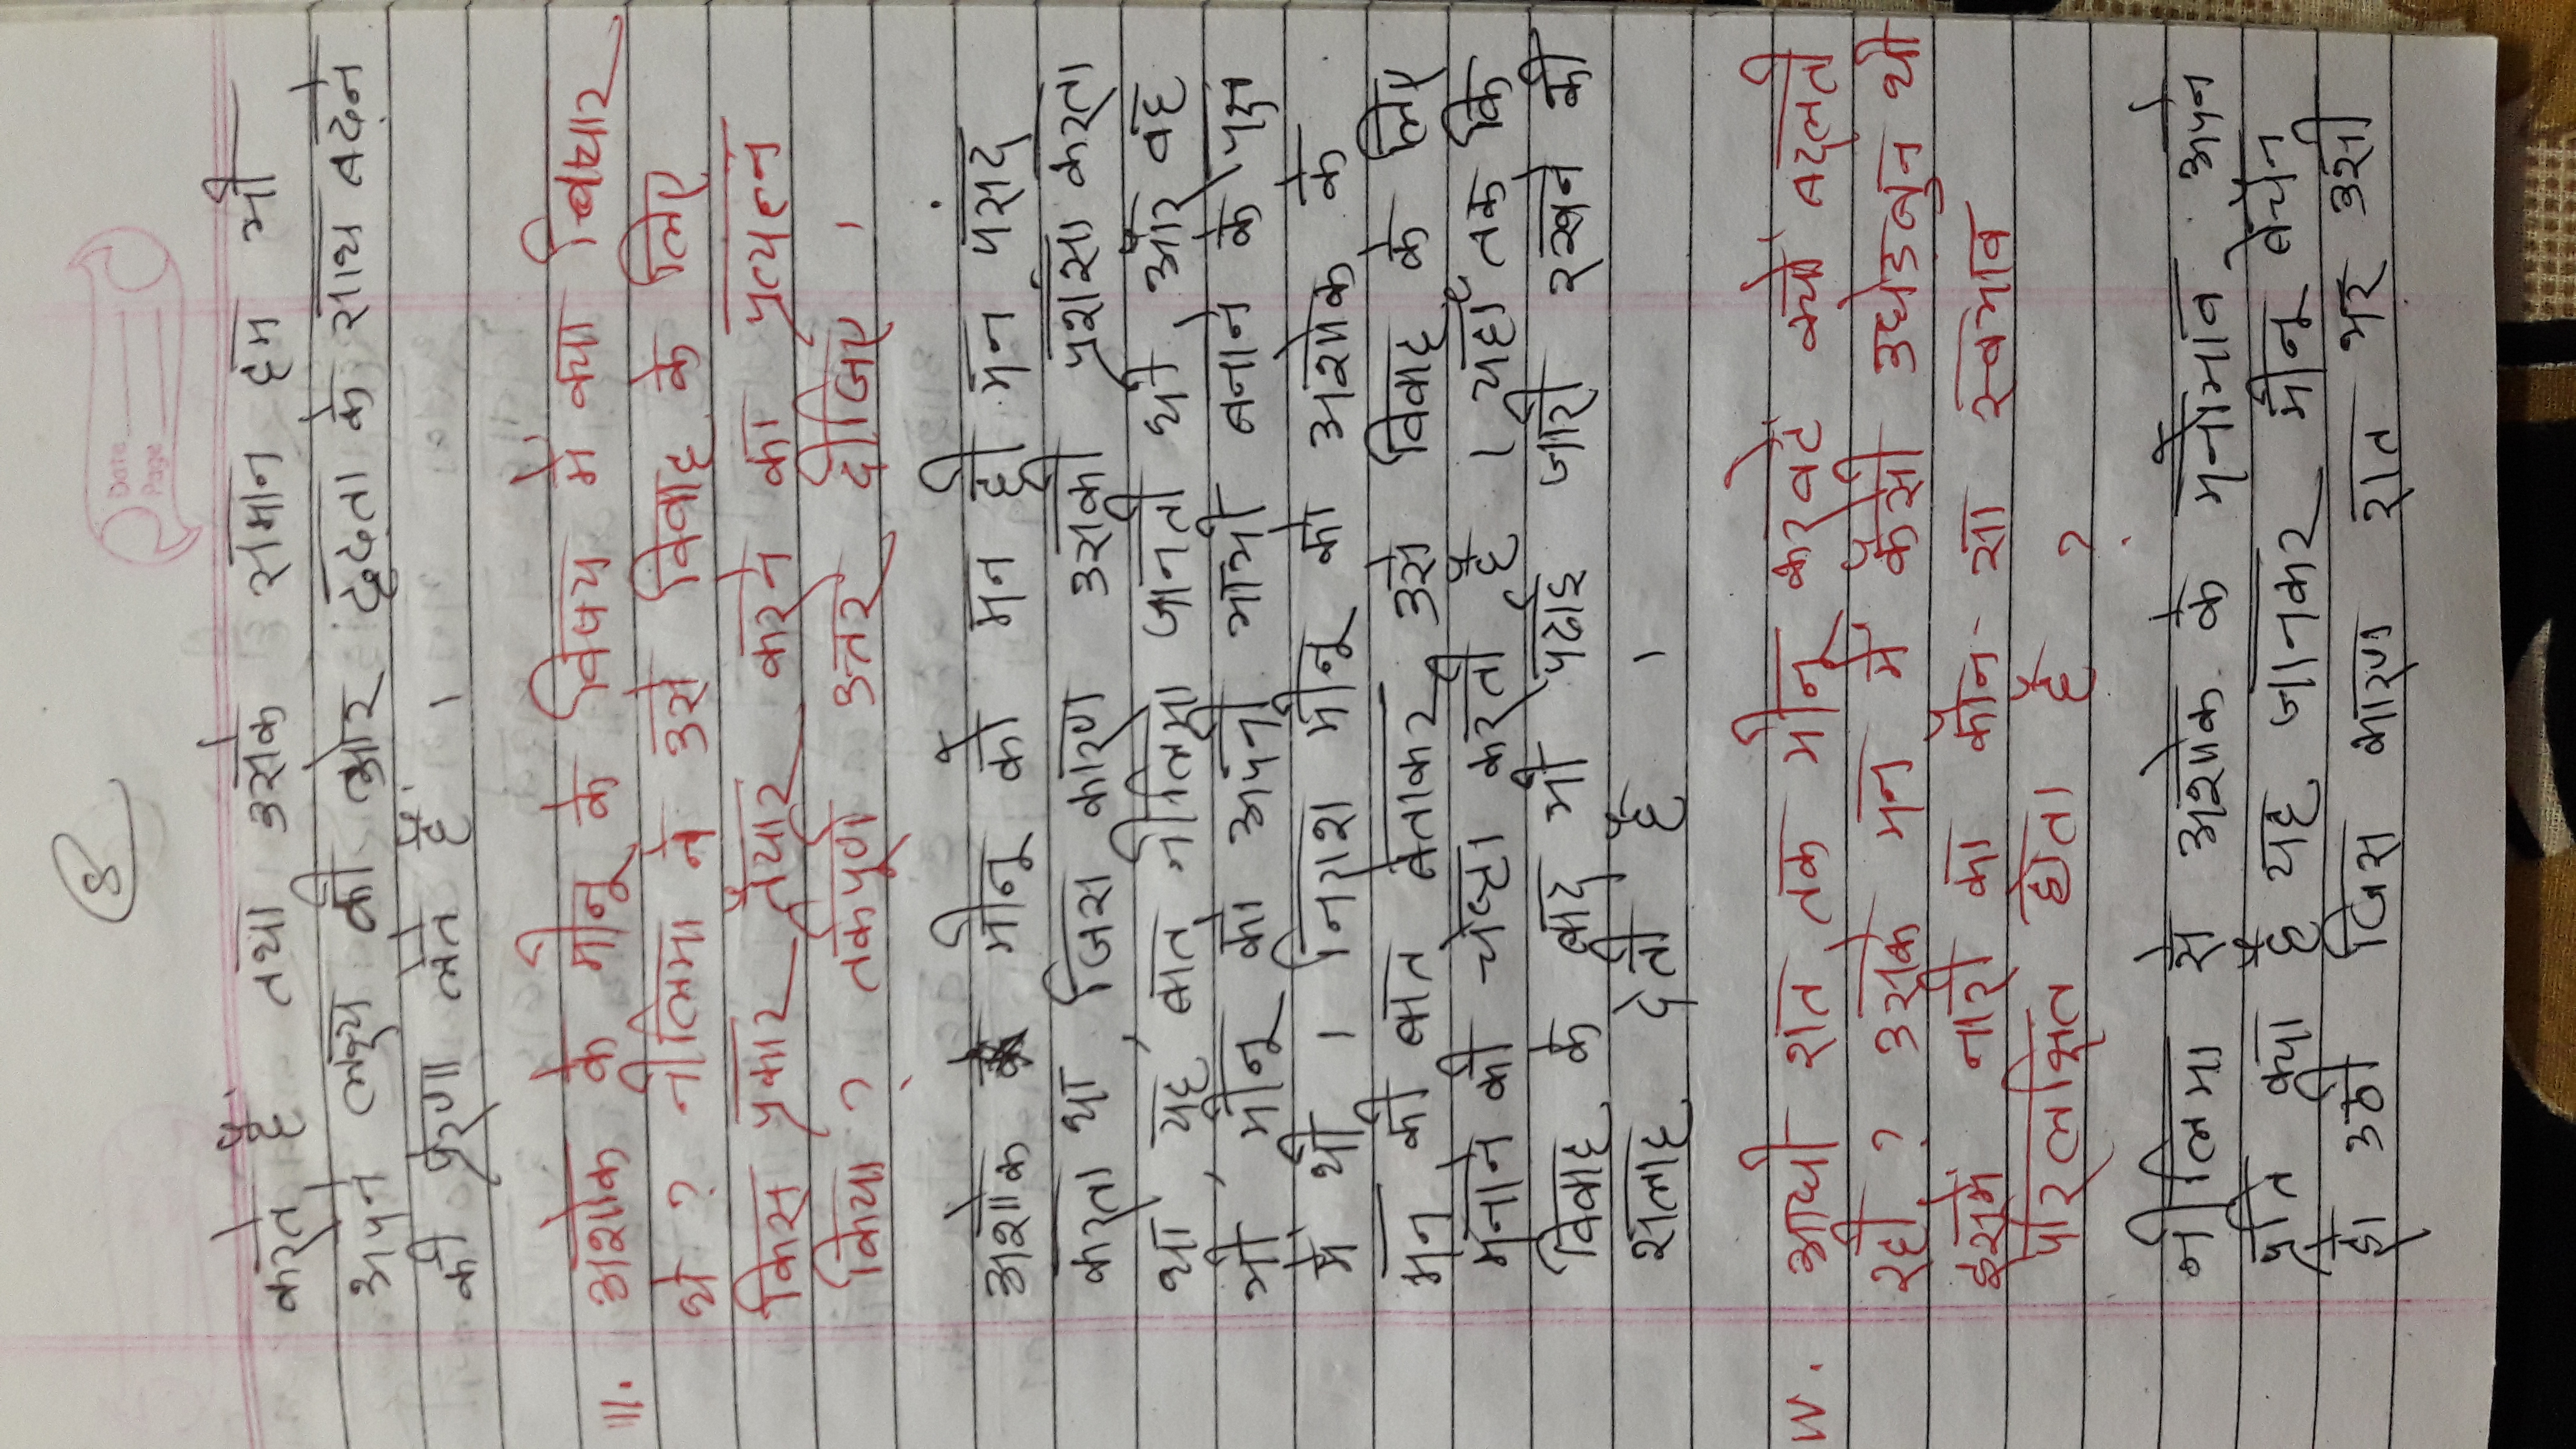 8
Date
Page
करते हैं तथा उसके समान हम भी
अपने लक्ष्य की ओर दृढ़ता के साथ बढ़ने
की प्रेरणा लेते हैं ।
III. अशोक के मीनू के विषय में क्या विचार
थे ? नीलिमा ने उसे विवाह के लिए
किस प्रकार तैयार करने का प्रयत्न
किया ? तर्कपूर्ण उत्तर दीजिए ।
अशोक मीनू को मन ही मन पसंद
करता था जिस कारण उसकी प्रशंसा करता
था, यह बात नीलिमा जानती थी और वह
भी, मीनू को अपनी भाभी बनाने के पक्ष
में थी । निराश मीनू को अशोक के
मन की बात बताकर उसे विवाह के लिए
मनाने की चेष्टा करती है । यहाँ तक कि
विवाह के बाद भी पढाई जारी रखने की
सलाह देती है ।
IV. आधी रात तक मीनू करवटें क्यों बदलती
रही ? उसके मन में कैसी उधेड़बुन थी
इसमें नारी का कौन-सा स्वभाव
परिलक्षित होता है ?
नीलिमा से अशोक के मनोभाव अपने
प्रति क्या है यह जानकर मीनू बेचैन
हो उठी जिस कारण रात भर उसी